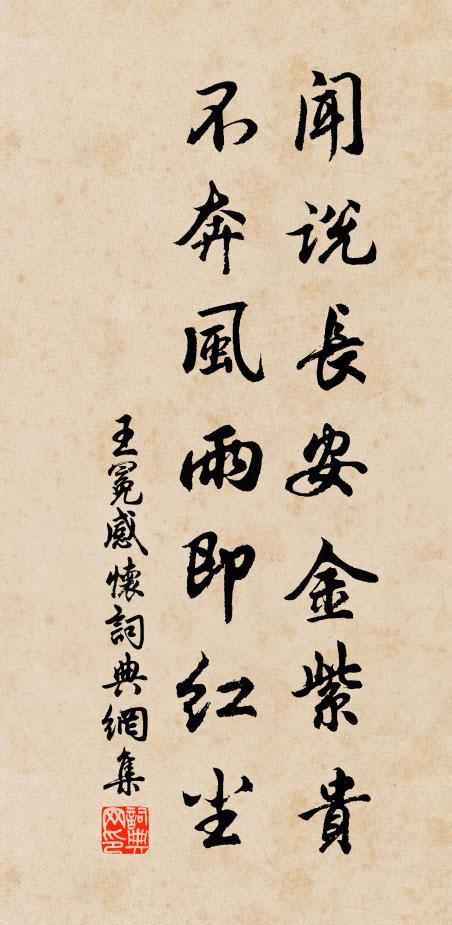 闻说長安金紫貴
不奔風雨即红尘
王冕感懷詞典網集
詞典网印